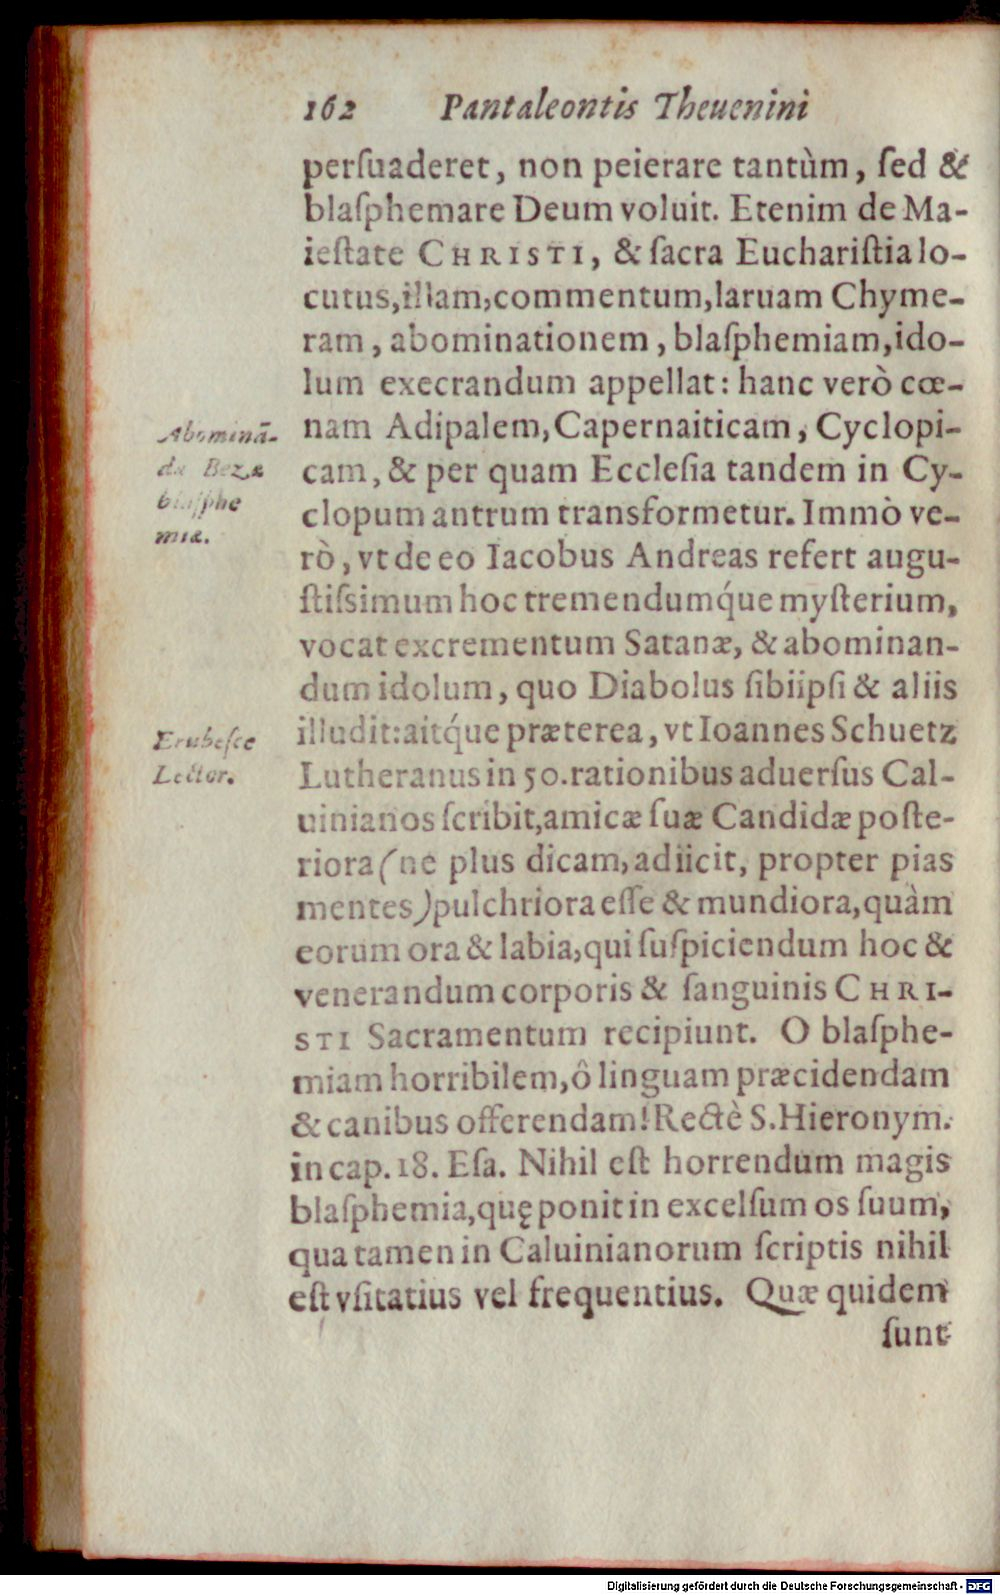 162 Pantaleontis Theuenini
perſuaderet, non peierare tantùm, ſed &
blaſphemare Deum voluit. Etenim de Ma-
ieſtate CHRISTI, & ſacra Euchariſtia lo-
cutus, illam, commentum, laruam Chyme-
ram, abominationem, blaſphemiam, ido-
lum execrandum appellat: hanc verò cœ-
nam Adipalem, Capernaiticam, Cyclopi-
cam, & per quam Eccleſia tandem in Cy-
clopum antrum transformetur. Immò ve-
rò, vt de eo Iacobus Andreas refert augu-
ſtiſsimum hoc tremendumq́ue myſterium,
vocat excrementum Satanæ, & abominan-
dum idolum, quo Diabolus ſibiipſi & aliis
illudit: aitq́ue præterea, vt Ioannes Schuetz
Lutheranus in 50. rationibus aduerſus Cal-
uinianos ſcribit, amicæ ſuæ Candidæ poſte-
riora (ne plus dicam, adiicit, propter pias
mentes) pulchriora eſſe & mundiora, quàm
eorum ora & labia, qui ſuſpiciendum hoc &
venerandum corporis & ſanguinis CHRI-
STI Sacramentum recipiunt. O blaſphe-
miam horribilem, ô linguam præcidendam
& canibus offerendam! Rectè S. Hieronym.
in cap. 18. Eſa. Nihil eſt horrendum magis
blaſphemia, quę ponit in excelſum os ſuum,
qua tamen in Caluinianorum ſcriptis nihil
eſt vſitatius vel frequentius. Quæ quidem
ſunt
Abominā-
dæ Bezæ
blaſphe
miæ.
Erubeſce
Lector.
Digitalisierung gefördert durch die Deutsche Forschungsgemeinschaft - DFG